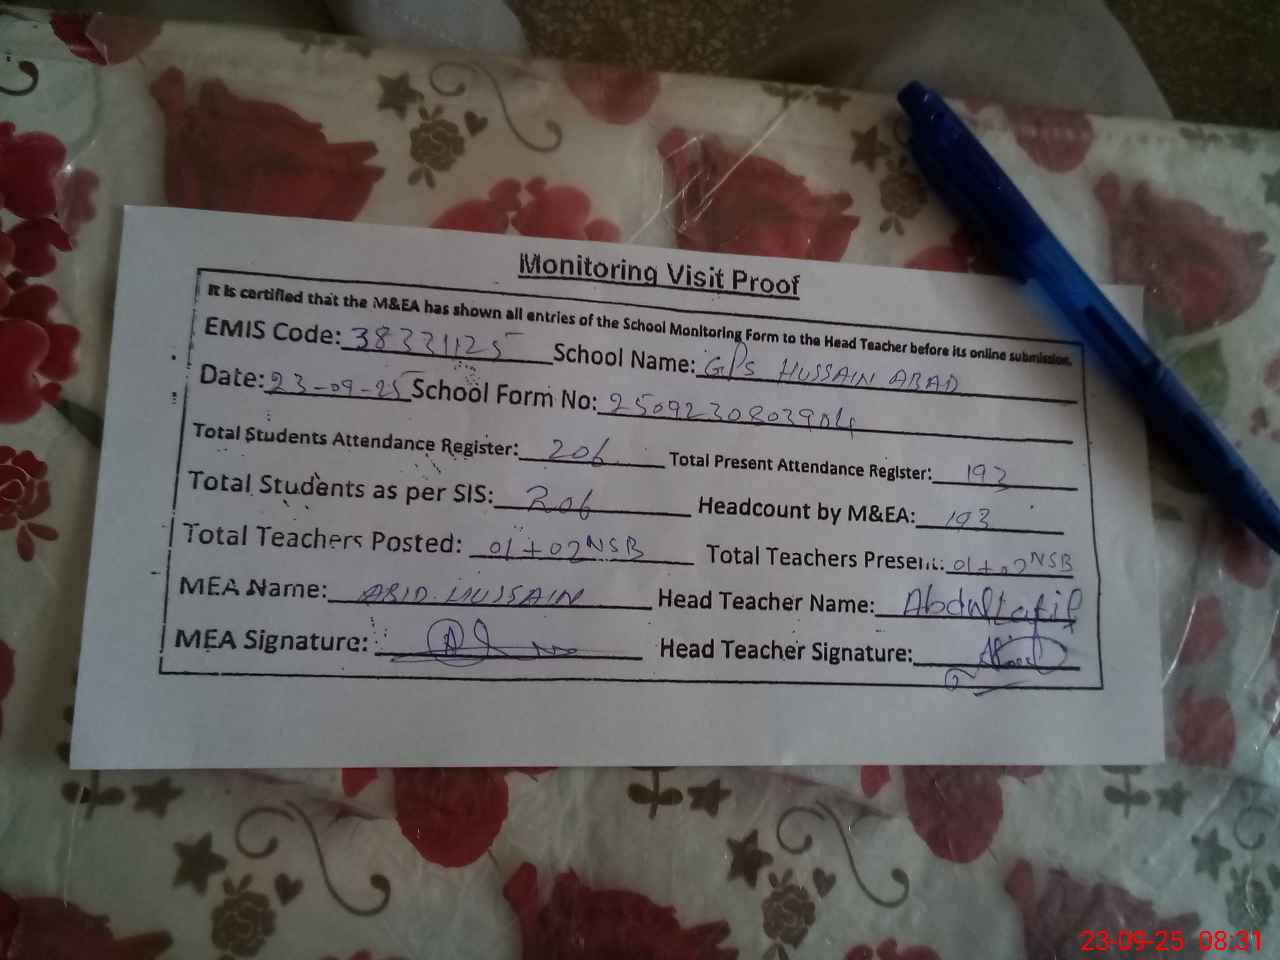 Monitoring Visit Proof
It is certified that the M&EA has shown all entries of the School Monitoring Form to the Head Teacher before its online submission.
EMIS Code: 38331125 School Name: GPS HUSSAIN ABAD
Date: 23-09-25 School Form No: 2509230803904
Total Students Attendance Register: 206 Total Present Attendance Register: 193
Total Students as per SIS: 206 Headcount by M&EA: 193
Total Teachers Posted: 01+02 NSB Total Teachers Present: 01+02 NSB
MEA Name: ABID HUSSAIN Head Teacher Name: Abdul Latif
MEA Signature: Head Teacher Signature:
23-09-25 08:31